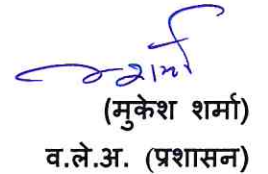 शर्मा
(मुकेश शर्मा)
व.ले.अ. (प्रशासन)